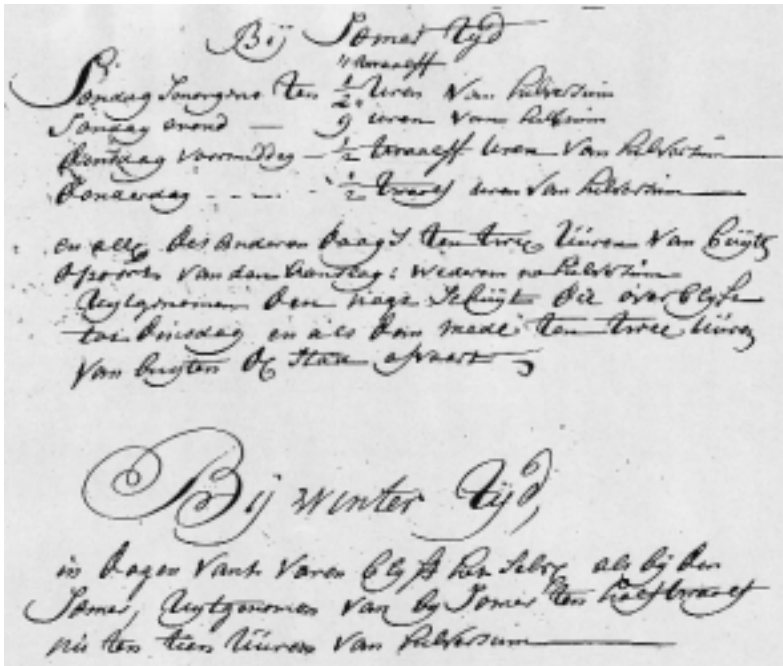 Bij Somer Tijd
twaalff
Sondag smorgens ten ½ uren van hilversum
Sondag avond — 9 uren van hilversum
dinsdag voormiddag — ½ twaalff uren van hilversum
donderdag - - - - ½ twaalf uren van hilversum
en alle des anderen daags ten twee uuren van buyten
d'poorte van den weder na hilversum
uytgenomen den nagt schuyt die over blyft
tot dinsdag en als dan mede ten twee uuren
van buyten de Stad afvaart
Bij winter Tijd,
in dagen vant varen blyft het selve als bij den
Somer, uytgenomen van by Somer ten half twaalf
nu ten tien uuren van hilversum